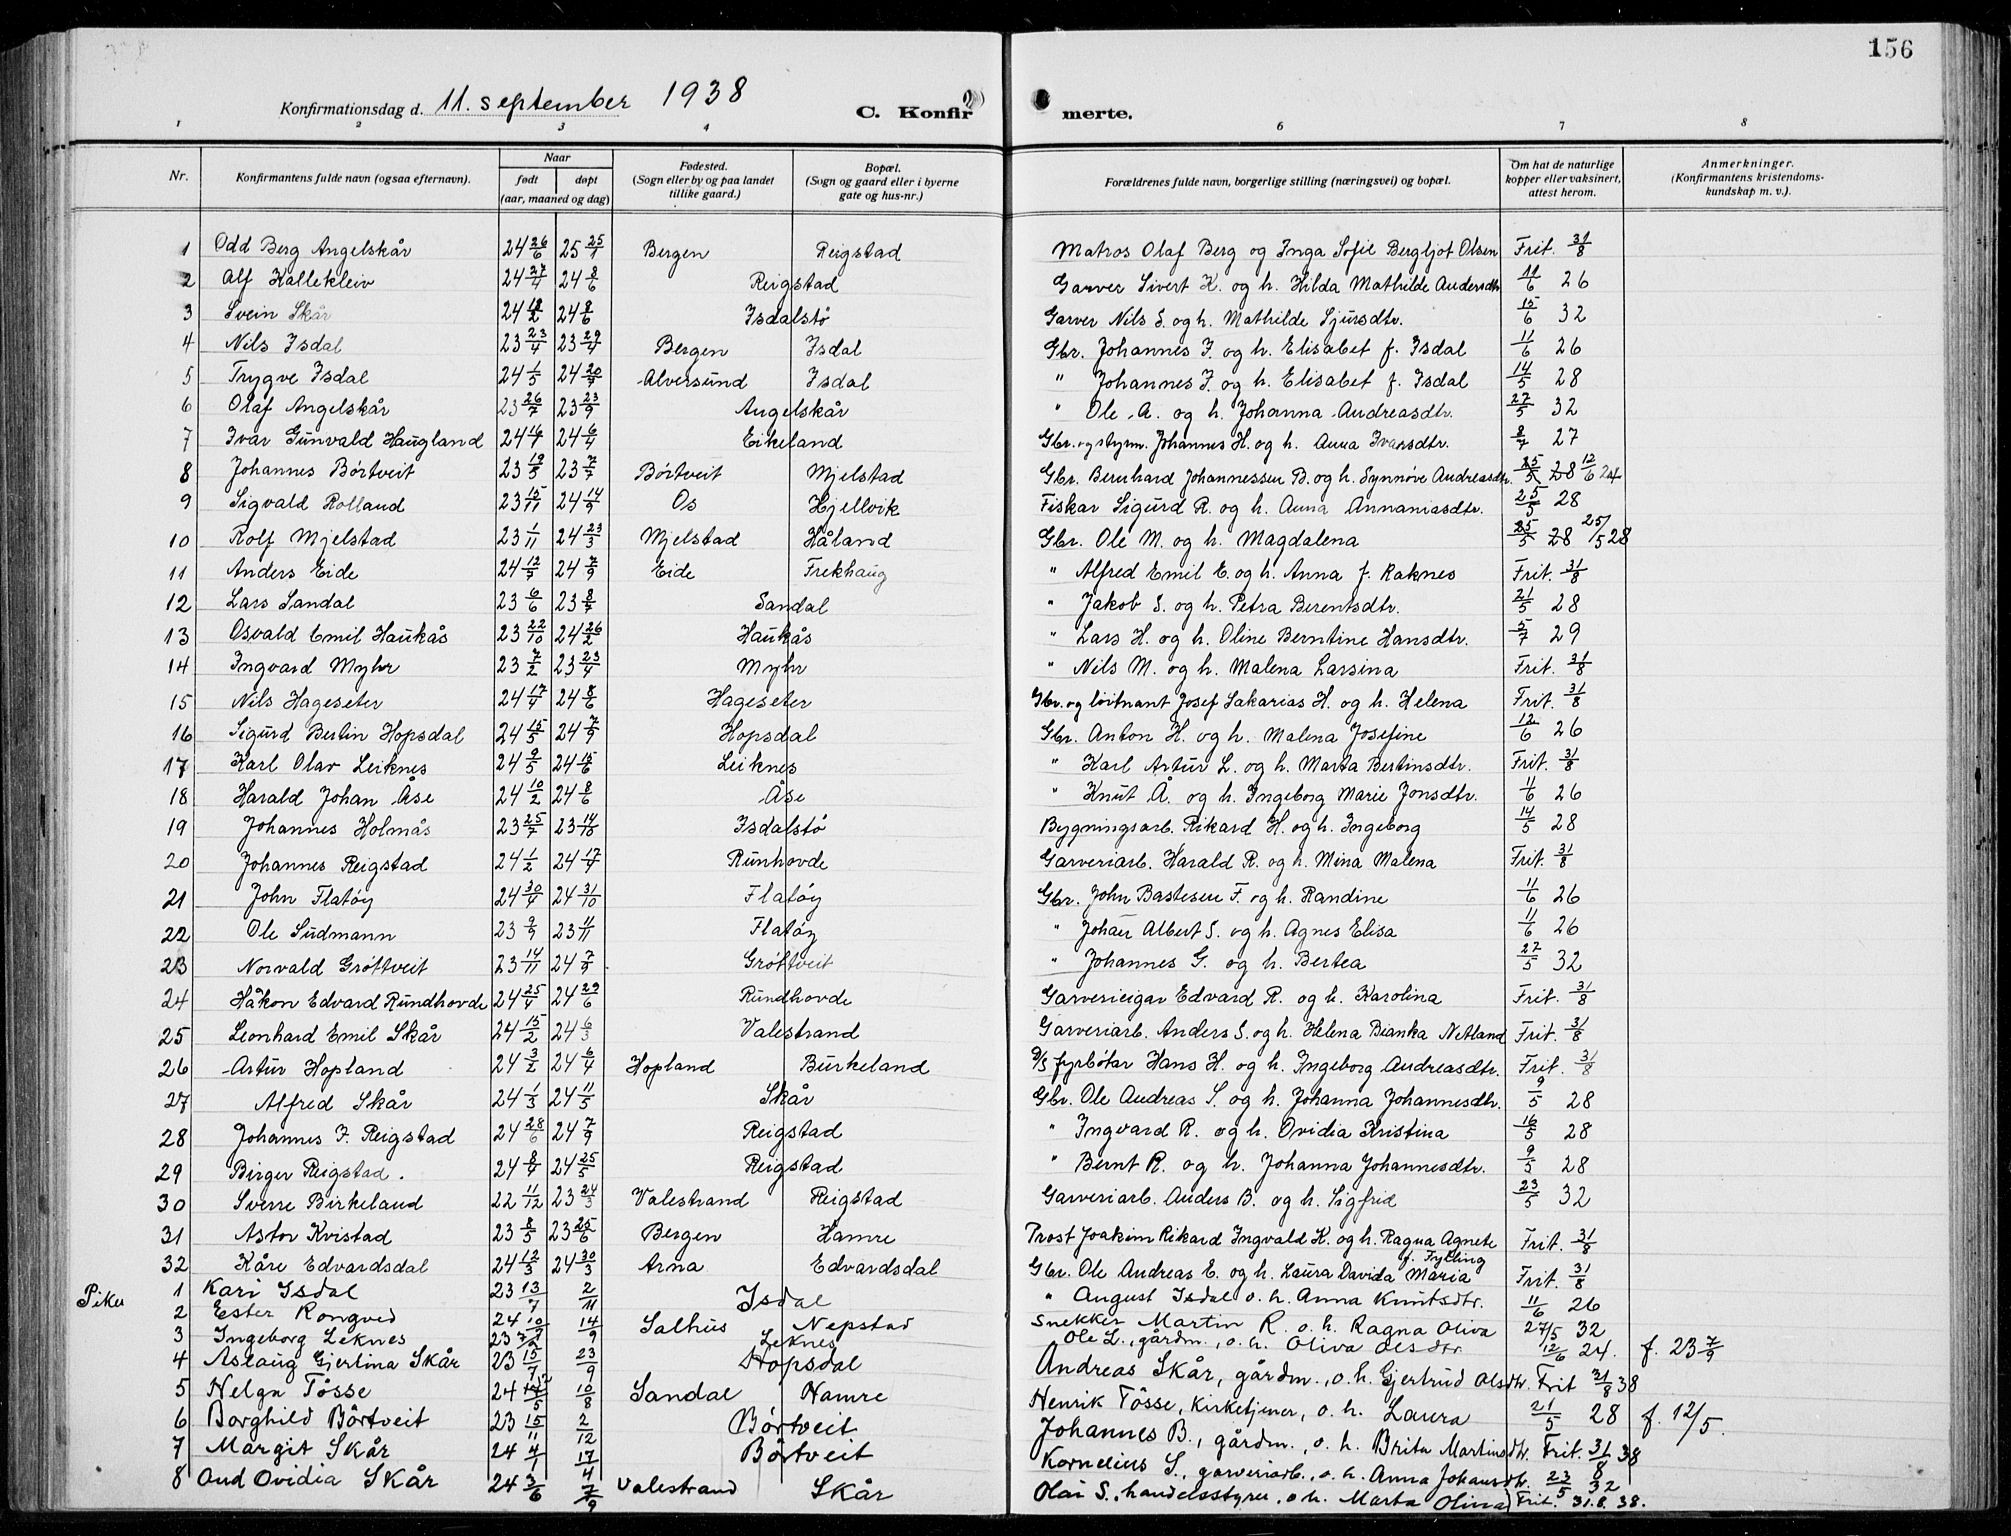 156
Konfirmationsdag d. 11. september 1938
C. Konfirmerte.
1 2 3 4 6 7 8
Nr. | Konfirmantens fulde navn (ogsaa efternavn). | Naar født døpt (aar, maaned og dag) | Fødested. (Sogn eller by og paa landet tillike gaard.) | Bopæl. (Sogn og gaard eller i byerne gate og hus-nr.) | Forældrenes fulde navn, borgerlige stilling (næringsvei) og bopæl. | Om hat de naturlige kopper eller vaksinert, attest herom. | Anmerkninger. (Konfirmantens kristendoms-kundskap m. v.).
1 Odd Berg Angelskår 24 26/6 25 25/1 Bergen Reigstad Matros Olaf Berg og Inga Sofie Bergljot Olsen Frit. 31/8
2 Alf Kallekleiv 24 27/4 24 8/6 Reigstad Garver Sivert K. og h. Hilda Mathilde Andersdtr. 11/6 26
3 Svein Skår 24 24 8/6 Isdalstø Garver Nils S. og h. Mathilde Sjursdtr. 15/6 32
4 Nils Isdal 23 23/4 23 29/4 Bergen Isdal Gbr. Johannes I. og h. Elisabet f. Isdal 11/6 26
5 Trygve Isdal 24 1/5 24 20/7 Alversund Isdal " Johannes I. og h. Elisabet f. Isdal 14/5 28
6 Olaf Angelskår 23 26/7 23 23/9 Angelskår " Ole A. og h. Johanna Andreasdtr. 27/5 32
7 Ivar Gunvald Haugland 24 16/1 24 6/4 Eikeland Gbr. og styrm. Johannes H. og h. Anna Ivarsdtr. 8/7 27
8 Johannes Börtveit 23 19/5 23 7/7 Börtveit Mjelstad Gbr. Bernhard Johannessen B. og h. Synnöve Andreasdtr. 25/5 28 12/6 24
9 Sigvald Rolland 23 15/11 24 14/9 Os Hjellvik Fiskar Sigurd R. og h. Anna Annaniasdtr. 25/5 28
10 Rolf Mjelstad 23 1/11 24 23/3 Mjelstad Håland Gbr. Ole M. og h. Magdalena 25/5 28 25/5 28
11 Anders Eide 24 12/7 24 7/9 Eide Frekhaug " Alfred Emil E. og h. Anna f. Raknes Frit. 31/8
12 Lars Sandal 23 6/6 23 8/7 Sandal " Jakob S. og h. Petra Berentsdtr. 21/5 28
13 Osvald Emil Haukås 23 22/10 24 26/2 Haukås " Lars H. og h. Oline Berntine Hansdtr. 5/7 29
14 Ingvard Myhr 23 7/2 23 23/4 Myhr " Nils M. og h. Malena Larsina Frit. 31/8
15 Nils Hageseter 24 17/4 24 8/6 Hageseter Gbr. og løitnant Josef Sakarias H. og h. Helena Frit. 31/8
16 Sigurd Bertin Hopsdal 24 15/5 24 7/9 Hopsdal Gbr. Anton H. og h. Malena Josefine 12/6 26
17 Karl Olav Leiknes 24 9/5 24 15/6 Leiknes " Karl Artur L. og h. Marta Bertinsdtr. Frit. 31/8
18 Harald Johan Åse 24 10/2 24 8/6 Åse " Knut Å. og h. Ingeborg Marie Jonsdtr. 11/6 26
19 Johannes Holmås 23 25/7 23 14/10 Isdalstø Bygningsarb. Rikard H. og h. Ingeborg 14/5 28
20 Johannes Reigstad 24 1/2 24 17/4 Runhovde Garveriarb. Harald R. og h. Mina Malena Frit. 31/8
21 John Flatöy 24 30/4 24 31/10 Flatöy Gbr. John Bastesen F. og h. Randine 11/6 26
22 Ole Sudmann 23 9/9 23 11/11 Flatöy " Johan Albert S. og h. Agnes Elisa 11/6 26
23 Norvald Gröttveit 23 14/11 24 7/9 Gröttveit " Johannes G. og h. Bertea 27/5 32
24 Håkon Edvard Rundhovde 24 25/4 24 29/6 Rundhovde Garverieigar Edvard R. og h. Karolina Frit. 31/8
25 Leonhard Emil Skår 24 15/2 24 6/3 Valestrand Garveriarb. Anders S. og h. Helena Bianka Netland Frit. 31/8
26 Artur Hopland 24 3/2 24 6/4 Hopland Burkeland D/S fyrbötar Hans H. og h. Ingeborg Andreasdtr. Frit. 31/8
27 Alfred Skår 24 1/3 24 11/5 Skår Gbr. Ole Andreas S. og h. Johanna Johannesdtr. 9/5 28
28 Johannes I. Reigstad 24 28/6 24 7/9 Reigstad " Ingvard R. og h. Ovidia Kristina 16/5 28
29 Birger Reigstad. 24 8/4 24 25/5 Reigstad " Bernt R. og h. Johanna Johannesdtr. 9/5 28
30 Sverre Birkeland 22 11/12 23 24/3 Valestrand Reigstad Garveriarb. Anders B. og h. Sigfrid 23/5 32
31 Astor Kvistad 23 8/5 23 25/6 Bergen Hamre Prost Joakim Rikard Ingvald K. og h. Ragna Agnete f. Frykling Frit. 31/8
32 Kåre Edvardsdal 24 12/3 24 30/3 Arna Edvardsdal Gbr. Ole Andreas E. og h. Laura Davida Maria Frit. 31/8
Piker 1 Kari Isdal 23 13/7 2/11 Isdal " August Isdal o. h. Anna Knutsdtr. 11/6 26
2 Ester Rongved 24 10/7 14/9 Salhus Nepstad Snekker Martin R. o. h. Ragna Oliva 27/5 32
3 Ingeborg Leknes 23 Leknes Ole L., gårdm., o. h. Oliva Olsdtr 12/6 24. f. 23 7/9
4 Aslaug Gjertina Skår 23 15/7 23/9 Hopsdal Andreas Skår, gårdm., o. h. Gjertrud Olsdtr. Frit 31/8 38
5 Helga Tösse 24 10/8 Sandal Hamre Henrik Tösse, Kirketjener, o. h. Laura 21/5 28 f. 12/5.
6 Borghild Börtveit 23 15/11 2/12 Börtveit Johannes B., gårdm., o. h. Brita Martinsdtr. Frit. 31/8 38
7 Margit Skår 24 4/1 17/4 Börtveit Kornelius S., garveriarb., o. h. Anna Johansdtr. 23/5 32
8 Aud Ovidia Skår 24 3/6 7/9 Valestrand Skår Olai S., handelsstyrer, o. h. Marta Olina Frit. 31.8. 38.